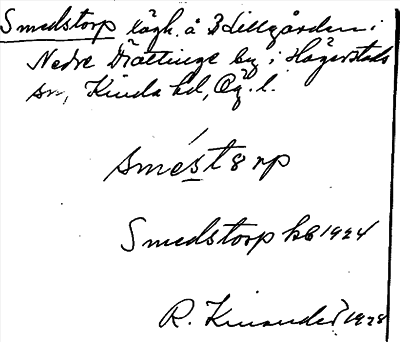 Smedstorp lägh. å 3 Lillgården i
Nedre Drättinge by i Hägerstads
sn, Kinda hd, Ög. l.
sméstorp
Smedstorp kb 1924
R. Kinander 1928